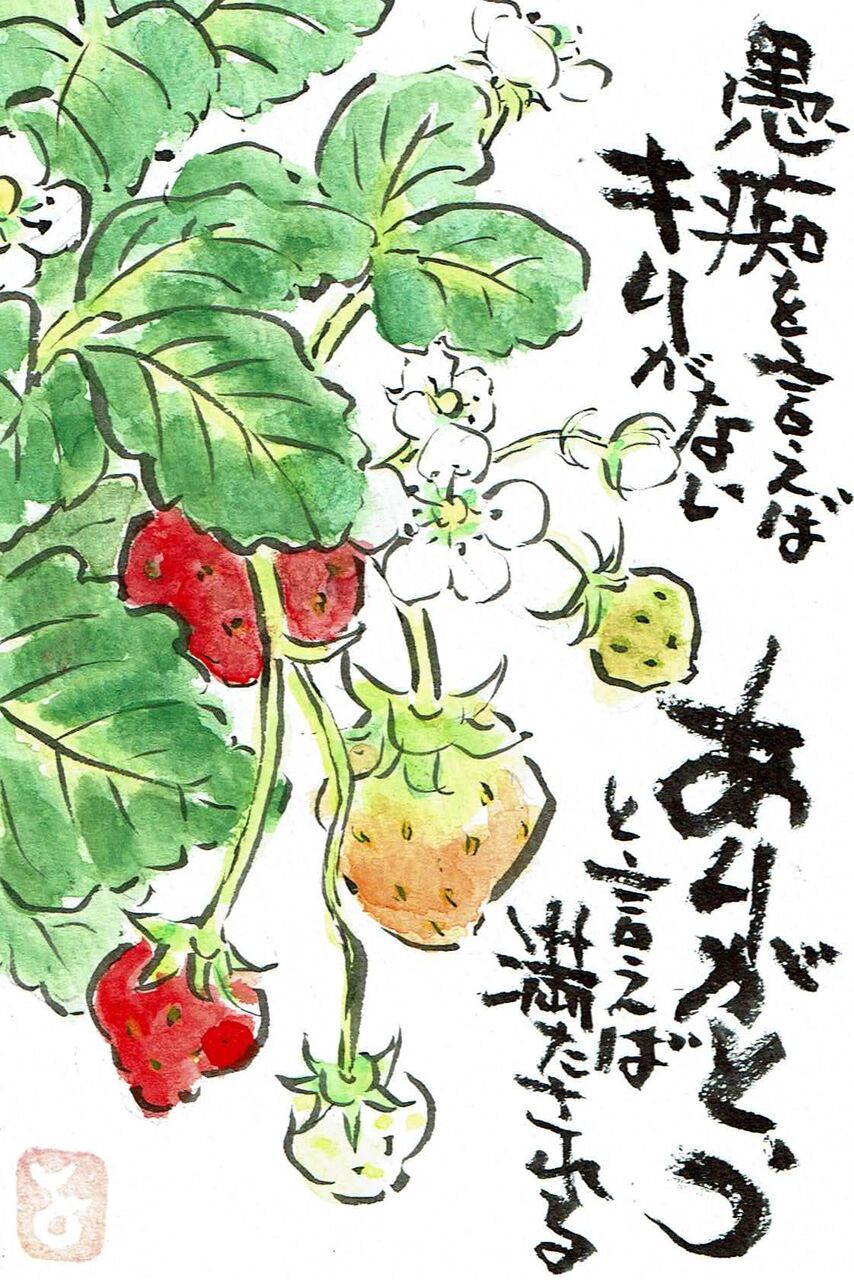 愚痴を言えば
キリがない
ありがとう
と言えば
満たされる